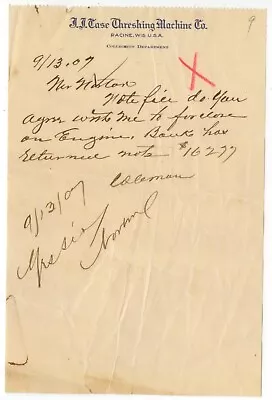 9
J.I. Case Threshing Machine Co.
RACINE, WIS. U.S.A.
COLLECTION DEPARTMENT
9/13.07
Mr
Note file do you
agree with me to foreclose
on Engine. Bank has
returned note $16277
Coleman
9/13/07
Yes sir